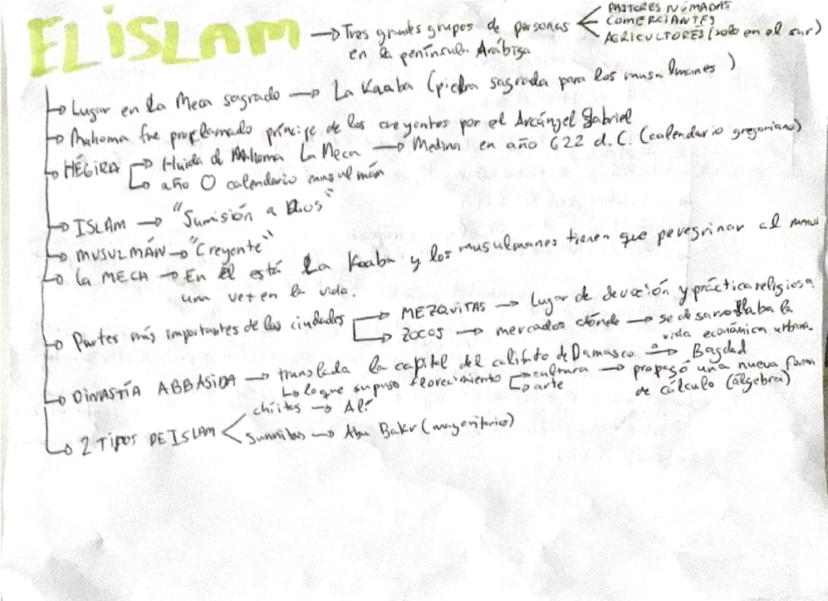 EL ISLAM → Tres grandes grupos de personas en la península Arábiga
PASTORES NÓMADAS
COMERCIANTES
AGRICULTORES (solo en el sur)
→ Lugar en la Meca sagrado → La Kaaba (piedra sagrada para los musulmanes)
→ Mahoma fue proclamado príncipe de los creyentes por el Arcángel Gabriel
→ HÉGIRA → Huida de Mahoma La Meca → Medina en año 622 d.C. (calendario gregoriano)
→ año 0 calendario musulmán
→ ISLAM → "Sumisión a Dios"
→ MUSULMÁN → "Creyente"
→ La MECA → En él está la Kaaba y los musulmanes tienen que peregrinar al menos
una vez en la vida.
→ Partes más importantes de las ciudades → MEZQUITAS → Lugar de devoción y práctica religiosa
→ ZOCOS → mercados dónde → se desarrollaba la
vida económica urbana
→ DINASTÍA ABBASIDA → translada la capital del califato de Damasco a → Bagdad
↳ lo que supuso florecimiento → cultura → propagó una nueva forma
→ arte
de cálculo (álgebra)
→ 2 TIPOS DE ISLAM
chiítes → Alí
sunnitas → Abu Bakr (mayoritarios)